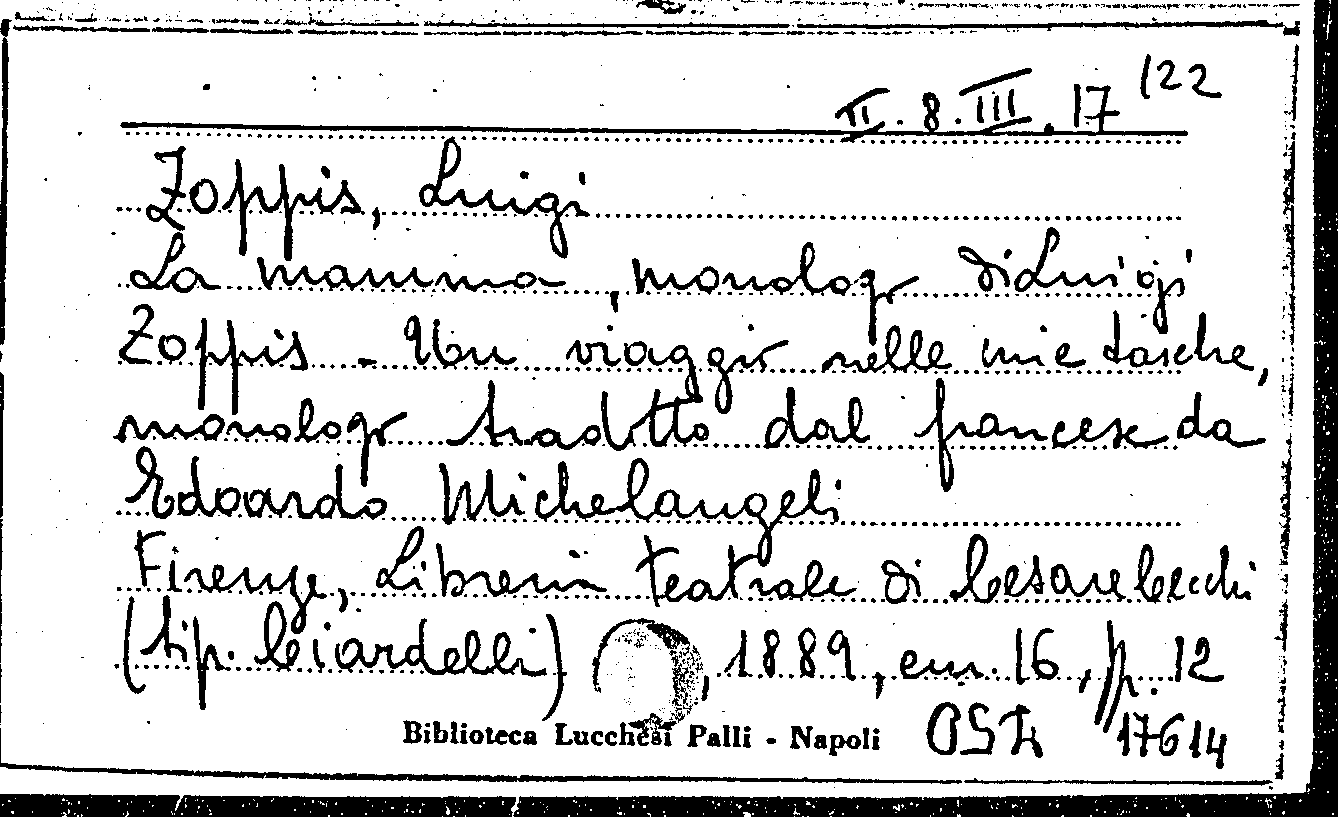 II. 8. III. 17 122
Zoppis, Luigi
La mamma, monologo di Luigi
Zoppis - Un viaggio nelle mie tasche,
monologo tradotto dal francese da
Edoardo Michelangeli
Firenze, Libreria teatrale di Cesare Cecchi
(tip. Ciardelli), 1889, cm. 16, p. 12
Biblioteca Lucchesi Palli - Napoli
17614